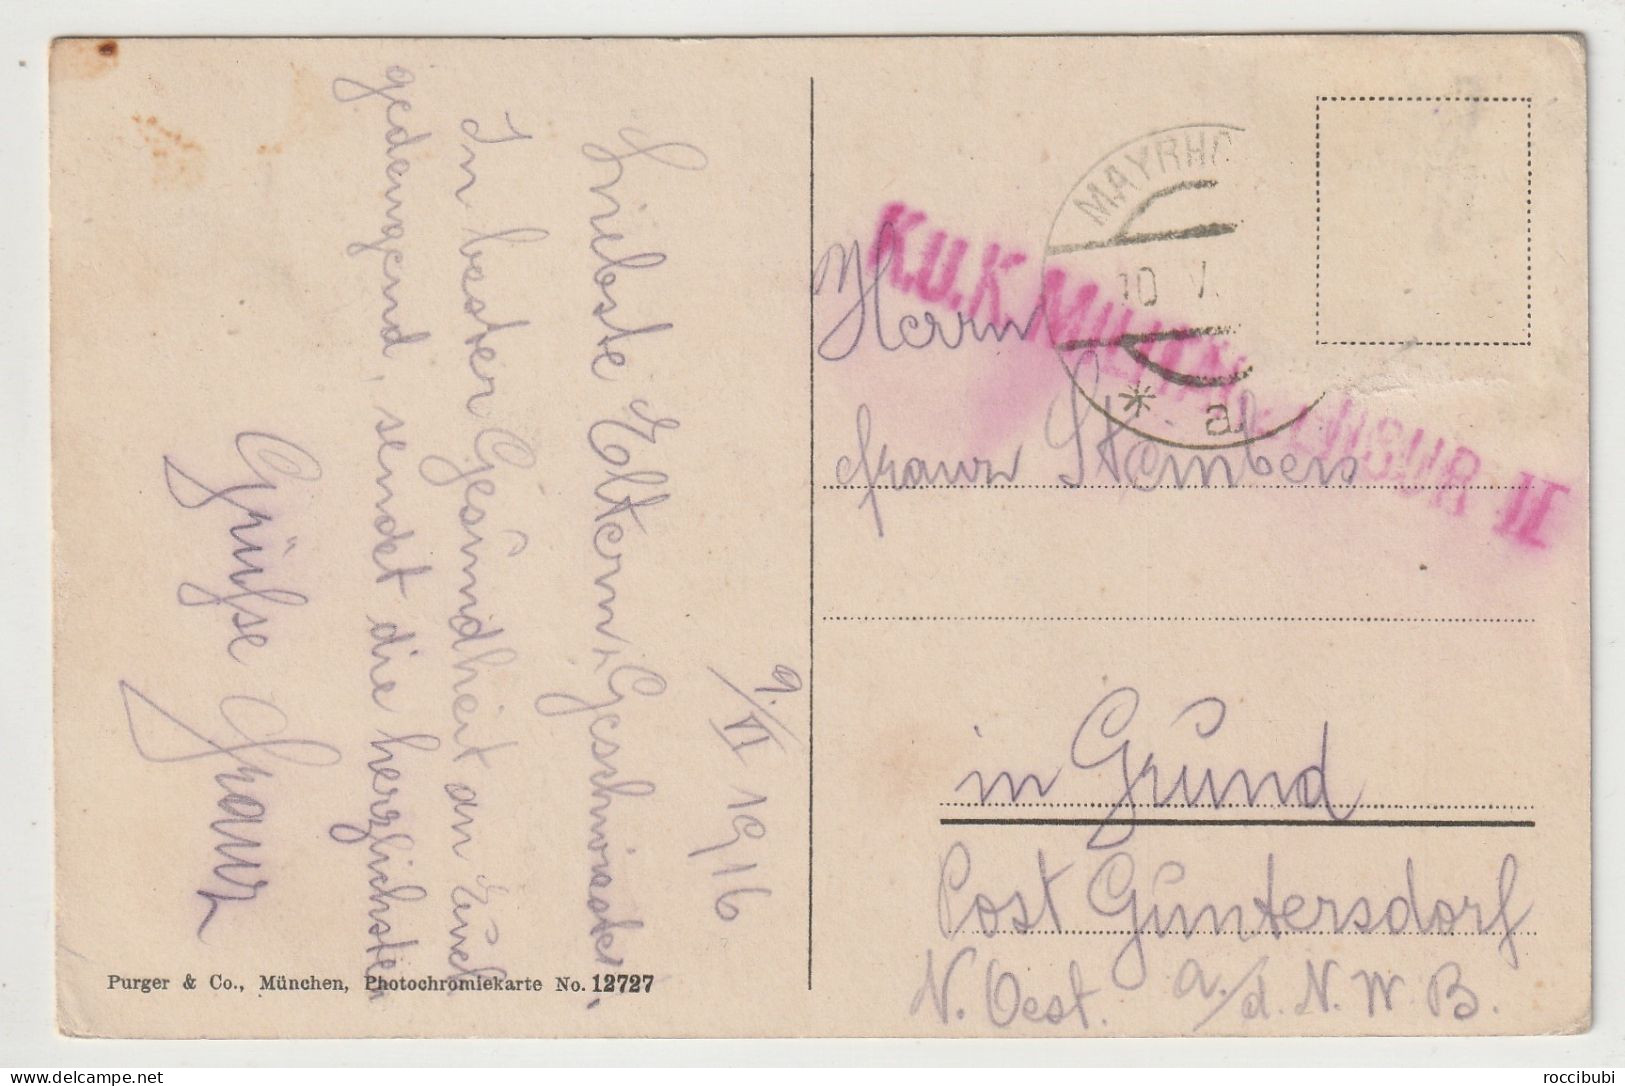 9./VI 1916
Liebste Eltern u. Geschwister!
In bester Gesundheit an Euch
gedengend, sendet die herzlichsten
Grüße Franz
Purger & Co., München, Photochromiekarte No. 12727
MAYRHO
10 V.
* a
K.U.K. MILITÄRZENSUR II
Herrn
Franz
in Grund
Post Guntersdorf
N. Oest. a./d. N. W. B.
roccibubi